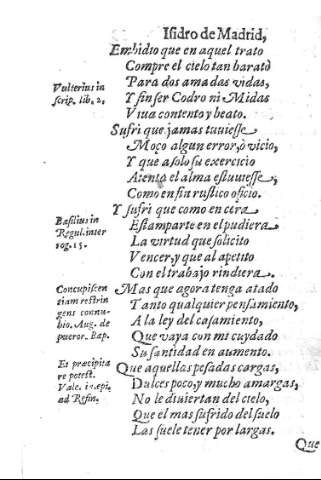 Isidro de Madrid,
Embidio que en aquel trato
Compre el cielo tan barato
Para dos amadas vidas,
Vulterius in
scrip. lib. 2.
Y sin ser Codro ni Midas
Viua contento y beato.
Sufri que jamas tuuiesse
Moço algun error, o vicio,
Y que a solo su exercicio
Atento el alma estuuiesse,
Como en fin rustico oficio.
Y sufri que como en cera
Basilius in
Regul. inter
rog. 15.
Estamparte en el pudiera
La virtud que solicito
Vencer, y que al apetito
Con el trabajo rindiera.
Concupiscen
tiam restrin
gens connu-
bio. Aug. de
pueror. Bap.
Mas que agora tenga atado
Tanto qualquier pensamiento,
A la ley del casamiento,
Que vaya con mi cuydado
Su santidad en aumento.
Et præcipita
re potest.
Vale. in epi.
ad Refin.
Que aquellas pesadas cargas,
Dulces poco, y mucho amargas,
No le diuiertan del cielo,
Que el mas sufrido del suelo
Las suele tener por largas.
Que